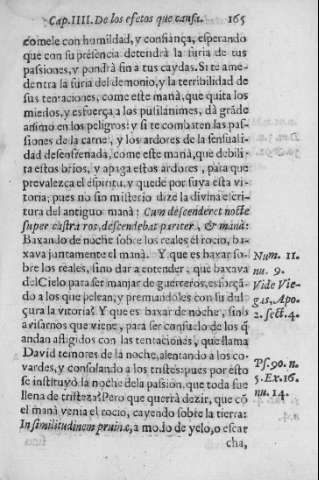 Cap. IIII. De los efetos que causa. 165
comele con humildad, y confiança, esperando
que con su presencia detendrà la furia de tus
passiones, y pondrà fin a tus caydas. Si te ame-
dentra la furia del demonio, y la terribilidad de
sus tentaciones, come este manà, que quita los
miedos, y esfuerça a los pusilanimes, dà gräde
animo en los peligros: y si te combaten las pas-
siones de la carne, y los ardores de la sensuali-
dad desenfrenada, come este manà, que debili-
ta estos brios, y apaga estos ardores, para que
prevalezca el espiritu, y quede por suya esta vi-
toria; pues no sin misterio dize la divina escri-
tura del antiguo manà: Cum descenderet nocte
super castra ros, descendebat pariter, & manà:
Baxando de noche sobre los reales el rocio, ba-
xava juntamente el manà. Y que es baxar so- Num. 11.
bre los reales, sino dar a entender, que baxava nu. 9.
del Cielo para ser manjar de guerreros, esforçã- Vide Vie-
do a los que pelean, y premiandoles con su dul- gas, Apo.
çura la vitoria? Y que es baxar de noche, sino 2. sect. 4.
avisarnos que viene, para ser consuelo de los q̃
andan afligidos con las tentaciones, que llama
David temores de la noche, alentando a los co-
vardes, y consolando a los tristes: pues por esto Ps. 90. n.
se instituyò la noche de la passion, que toda fue 5. Ex. 16.
llena de tristeza? Pero que querrà dezir, que cõ nu. 14.
el manà venia el rocio, cayendo sobre la tierra:
In similitudinem pruinæ, a modo de yelo, o escar
cha,